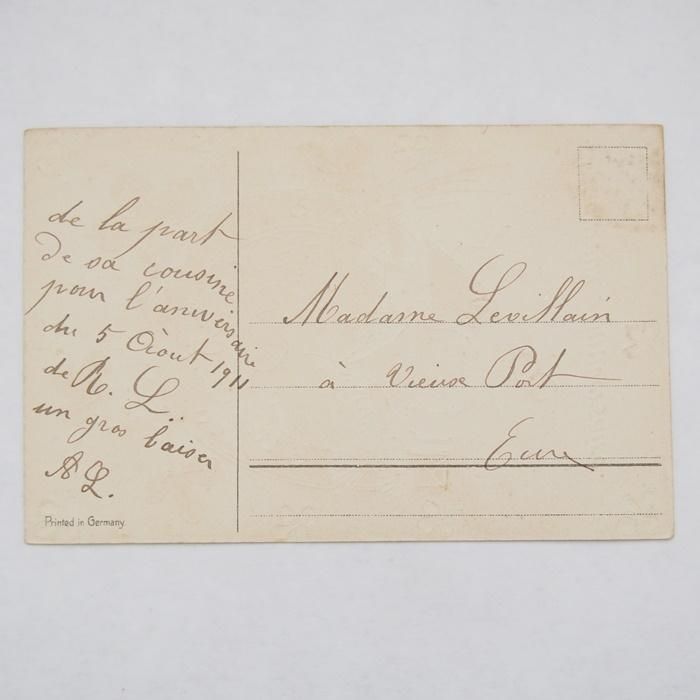 de la part
de sa cousine
pour l'anniversaire
du 5 Aout 1911
de R. L.
un gros baiser
A L.
Printed in Germany.
Madame Levillain
à Vieux Port
Eure